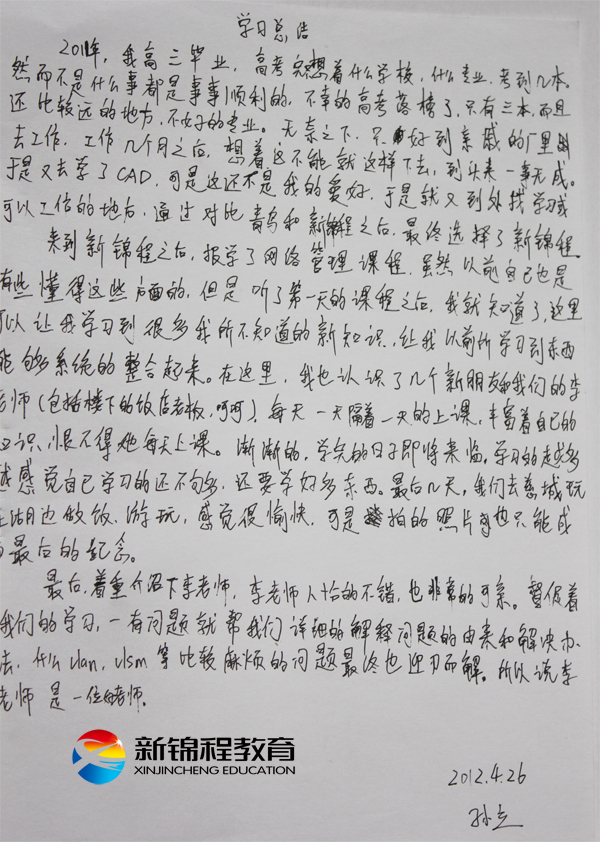 学习总结
2011年，我高三毕业，高考完想着什么学校，什么专业，考到几本。
然而不是什么事都是事事顺利的，不幸的高考落榜了，只有三本，而且
还比较远的地方，不好的专业。无奈之下，只好到亲戚的厂里
去工作，工作几个月之后，想着这不能就这样下去，到头来一事无成。
于是又去学了CAD，可是这还不是我的爱好，于是就又到处找学习或
可以工作的地方，通过对比青鸟和新锦程之后，最终选择了新锦程
来到新锦程之后，报学了网络管理课程，虽然以前自己也是
有些懂得这些方面的，但是听了第一天的课程之后，我就知道了，这里
可以让我学习到很多我所不知道的新知识，让我以前所学习到东西
能够系统的整合起来。在这里，我也认识了几个新朋友和我们的李
老师（包括楼下的饭店老板，呵呵），每天一天隔着一天的上课，丰富着自己的
知识，恨不得她每天上课。渐渐的，学完的日子即将来临，学习的越多
越感觉自己学习的还不够多，还要学好多东西。最后几天，我们去慈城玩
在湖边做饭、游玩，感觉很愉快，可是拍的照片也只能成
为最后的纪念。
最后，着重介绍下李老师，李老师人恰的不错，也非常的可亲。督促着
我们的学习，一有问题就帮我们详细的解释问题的由来和解决办
法，什么vlan，vlsm等比较麻烦的问题最终也迎刃而解。所以说李
老师是一位好老师。
新锦程教育
XINJINCHENG EDUCATION
2012.4.26
孙立